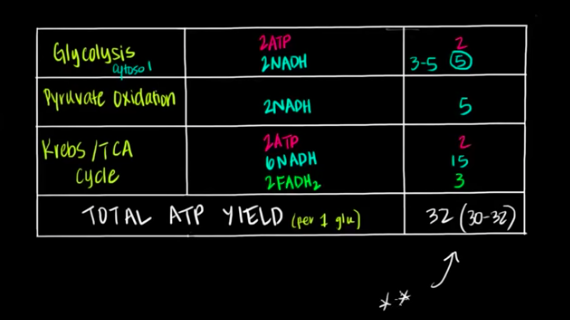 Glycolysis
cytosol
2ATP 2
2NADH 3-5 5
Pyruvate Oxidation 2NADH 5
Krebs/TCA 2ATP 2
cycle 6NADH 15
2FADH₂ 3
TOTAL ATP YIELD (per 1 glu) 32 (30-32)
**